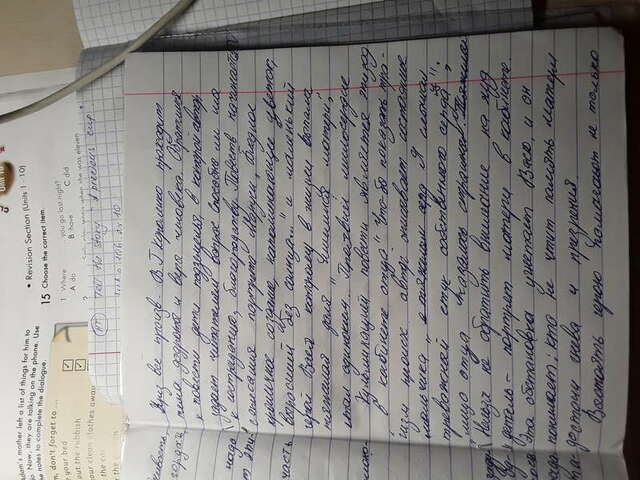 Adam's mother left a list of things for him to
do. Now, they are talking on the phone. Use
the notes to complete the dialogue.
m, don't forget to ....
your bed
out the rubbish
your clean clothes away
the ca
Revision Section (Units 1 - 10)
15 Choose the correct item.
1 Where you go last night?
A do B have C did
Tell the story "A precious cup
Через все произв. В Г Короленко проходит
тема доброты и веры человека. Обратимся
к повести дети подземелья, в которой автор
задает читателям вопрос способны ли мы
к состраданию, благородству. Повесть начинается
с описания портрета Маруси, "бледное
крошечное создание, напоминающее цветок,
взрасший без солнца..." и маленький
герой Вася которому в жизни выпала
тяжелая доля "лишился матери,
стал одиноким. Прояввил милосердие
Кульминацией повести является эпизод
"В кабинете отца". Что-бы показать тра-
гизм происх автор описывает состояние
мальчика "с тяжелым серд Я слышал
тревожный стук собственного серца",
"лицо отца казалось страшным.
Нельзя не обратить внимание на худ
деталь - портрет матери в кабинете.
Эта обстановка угнетает Васю, и он
понимает; кто не чтит память матери
достоин гнева и презрения.
Выстоять герою помагают не только
надо
часть